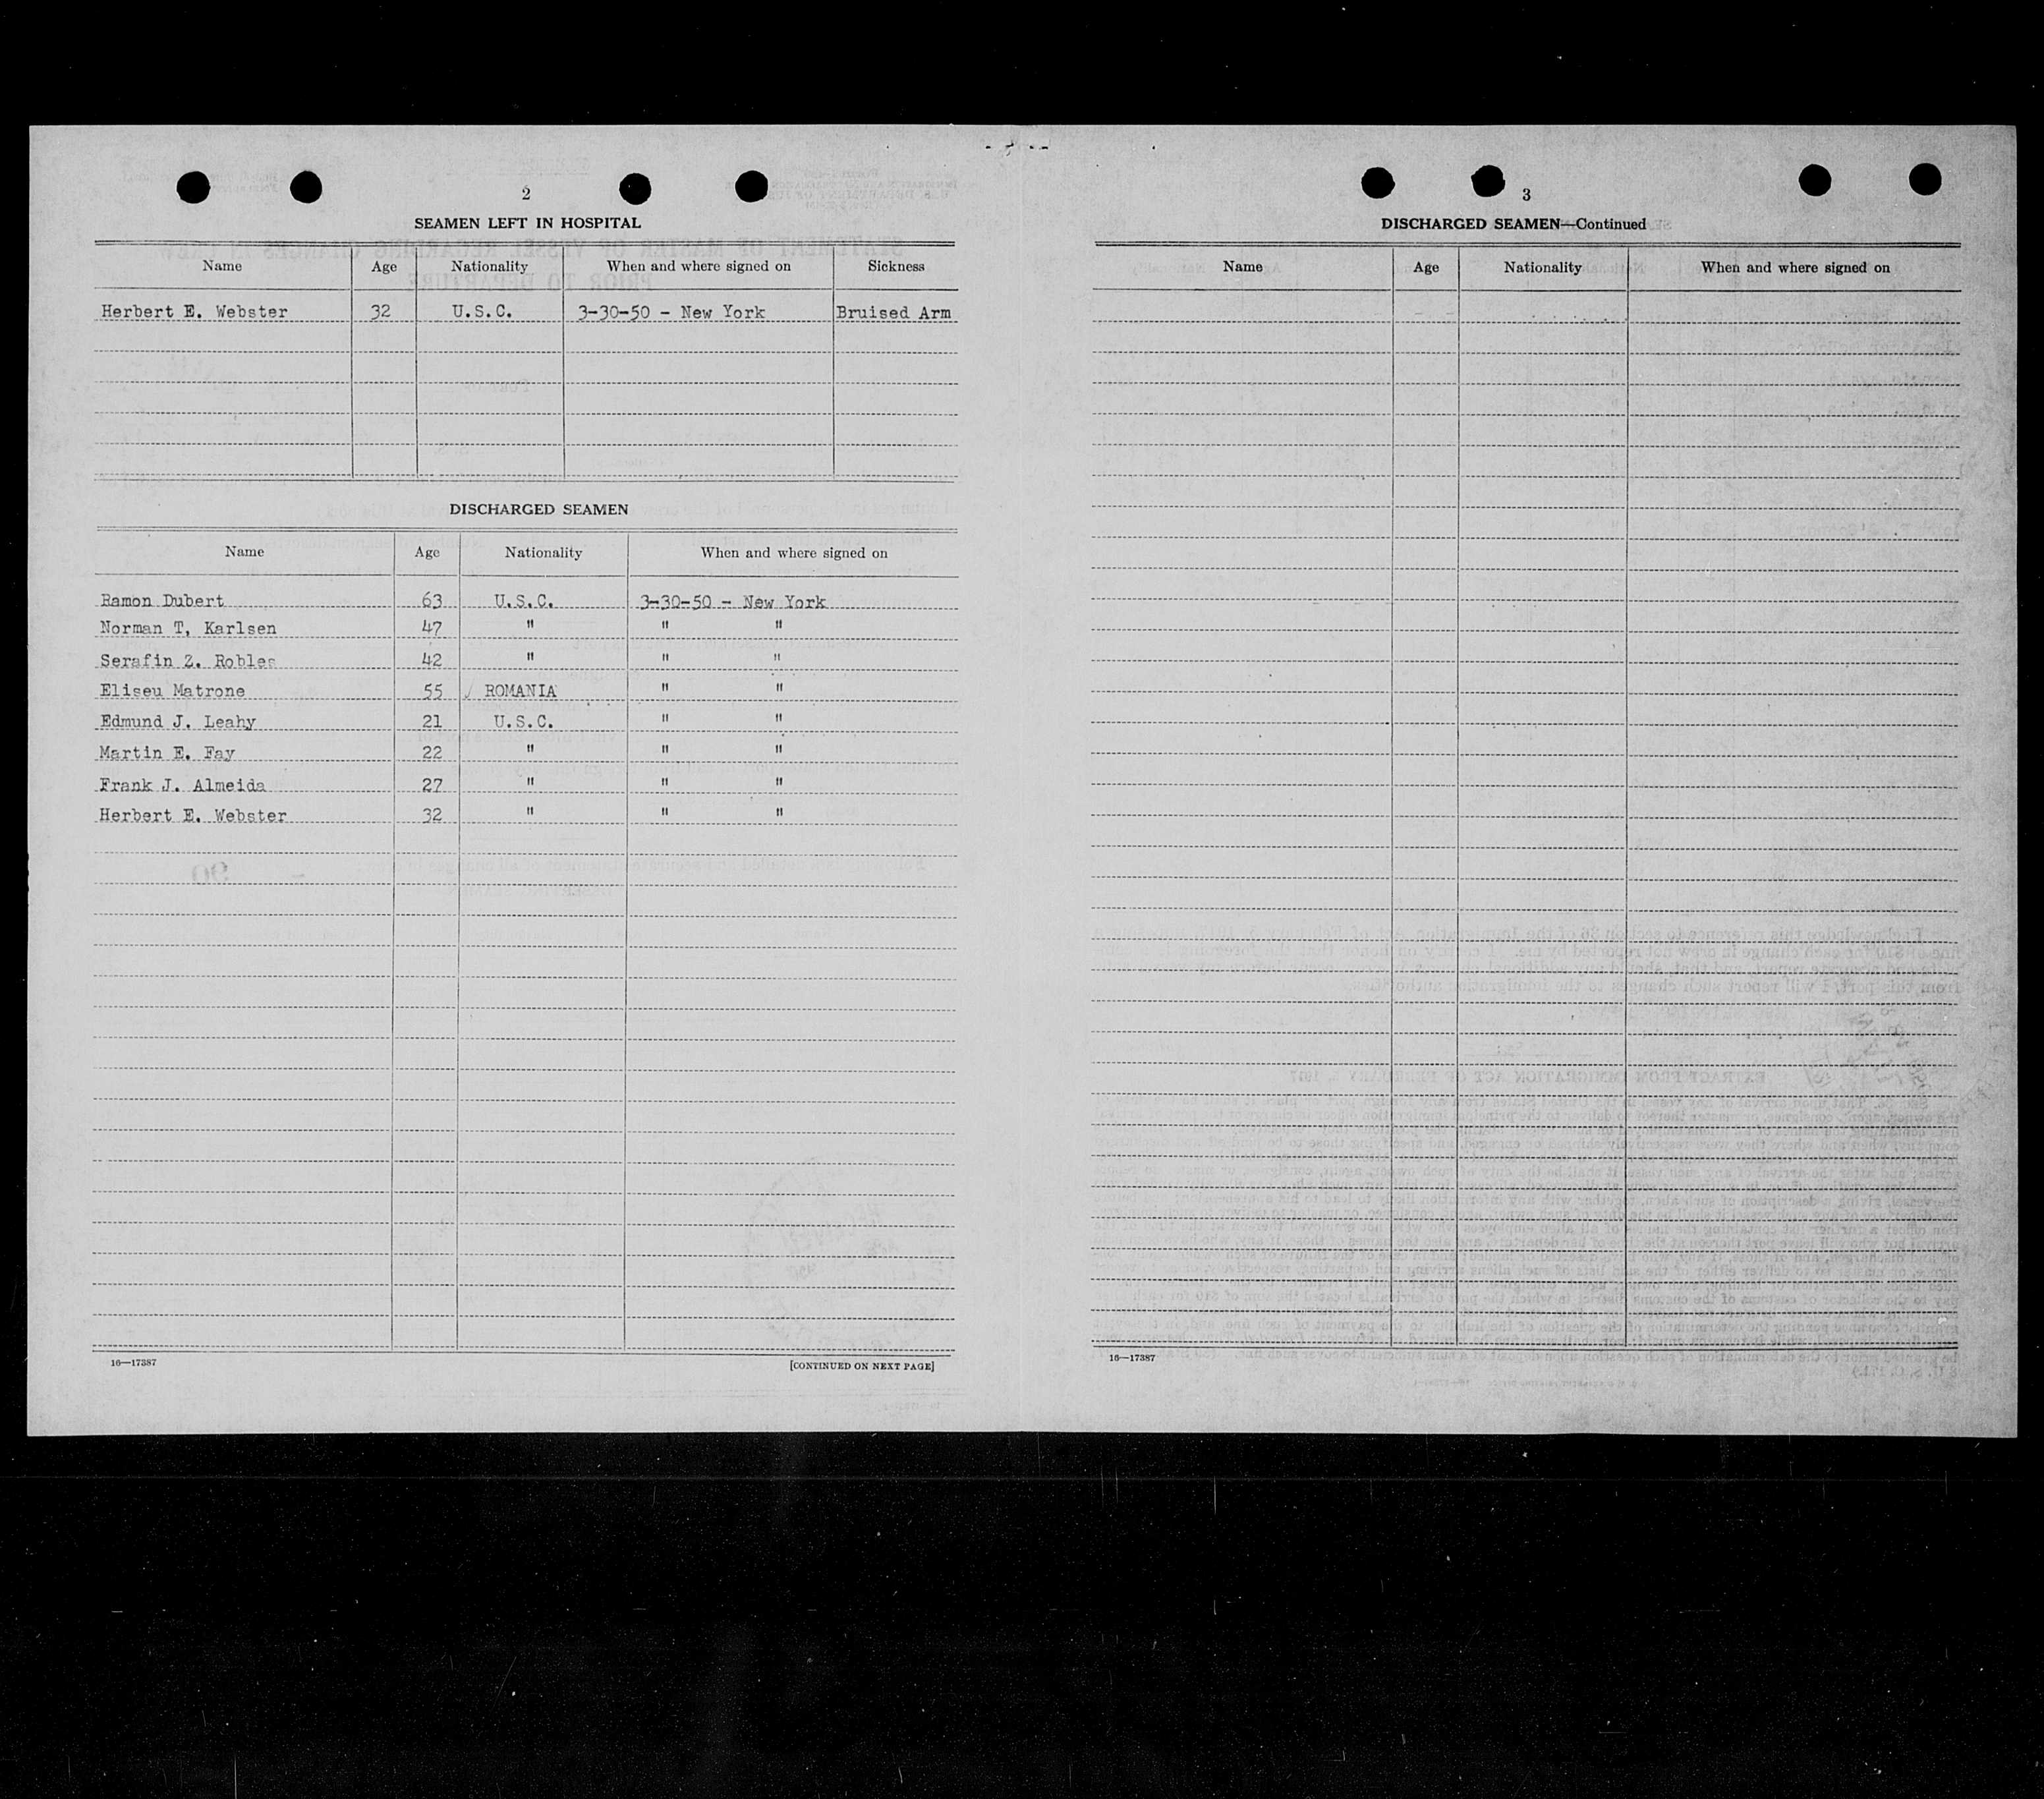 2
SEAMEN LEFT IN HOSPITAL
Name Age Nationality When and where signed on Sickness
Herbert E. Webster 32 U.S.C. 3-30-50 - New York Bruised Arm
DISCHARGED SEAMEN
Name Age Nationality When and where signed on
Ramon Dubert 63 U.S.C. 3-30-50 - New York
Norman T, Karlsen 47 " " "
Serafin Z. Robles 42 " " "
Eliseu Matrone 55 ✓ ROMANIA " "
Edmund J. Leahy 21 U.S.C. " "
Martin E. Fay 22 " " "
Frank J. Almeida 27 " " "
Herbert E. Webster 32 " " "
16—17387 [CONTINUED ON NEXT PAGE]
3
DISCHARGED SEAMEN—Continued
Name Age Nationality When and where signed on
16—17387